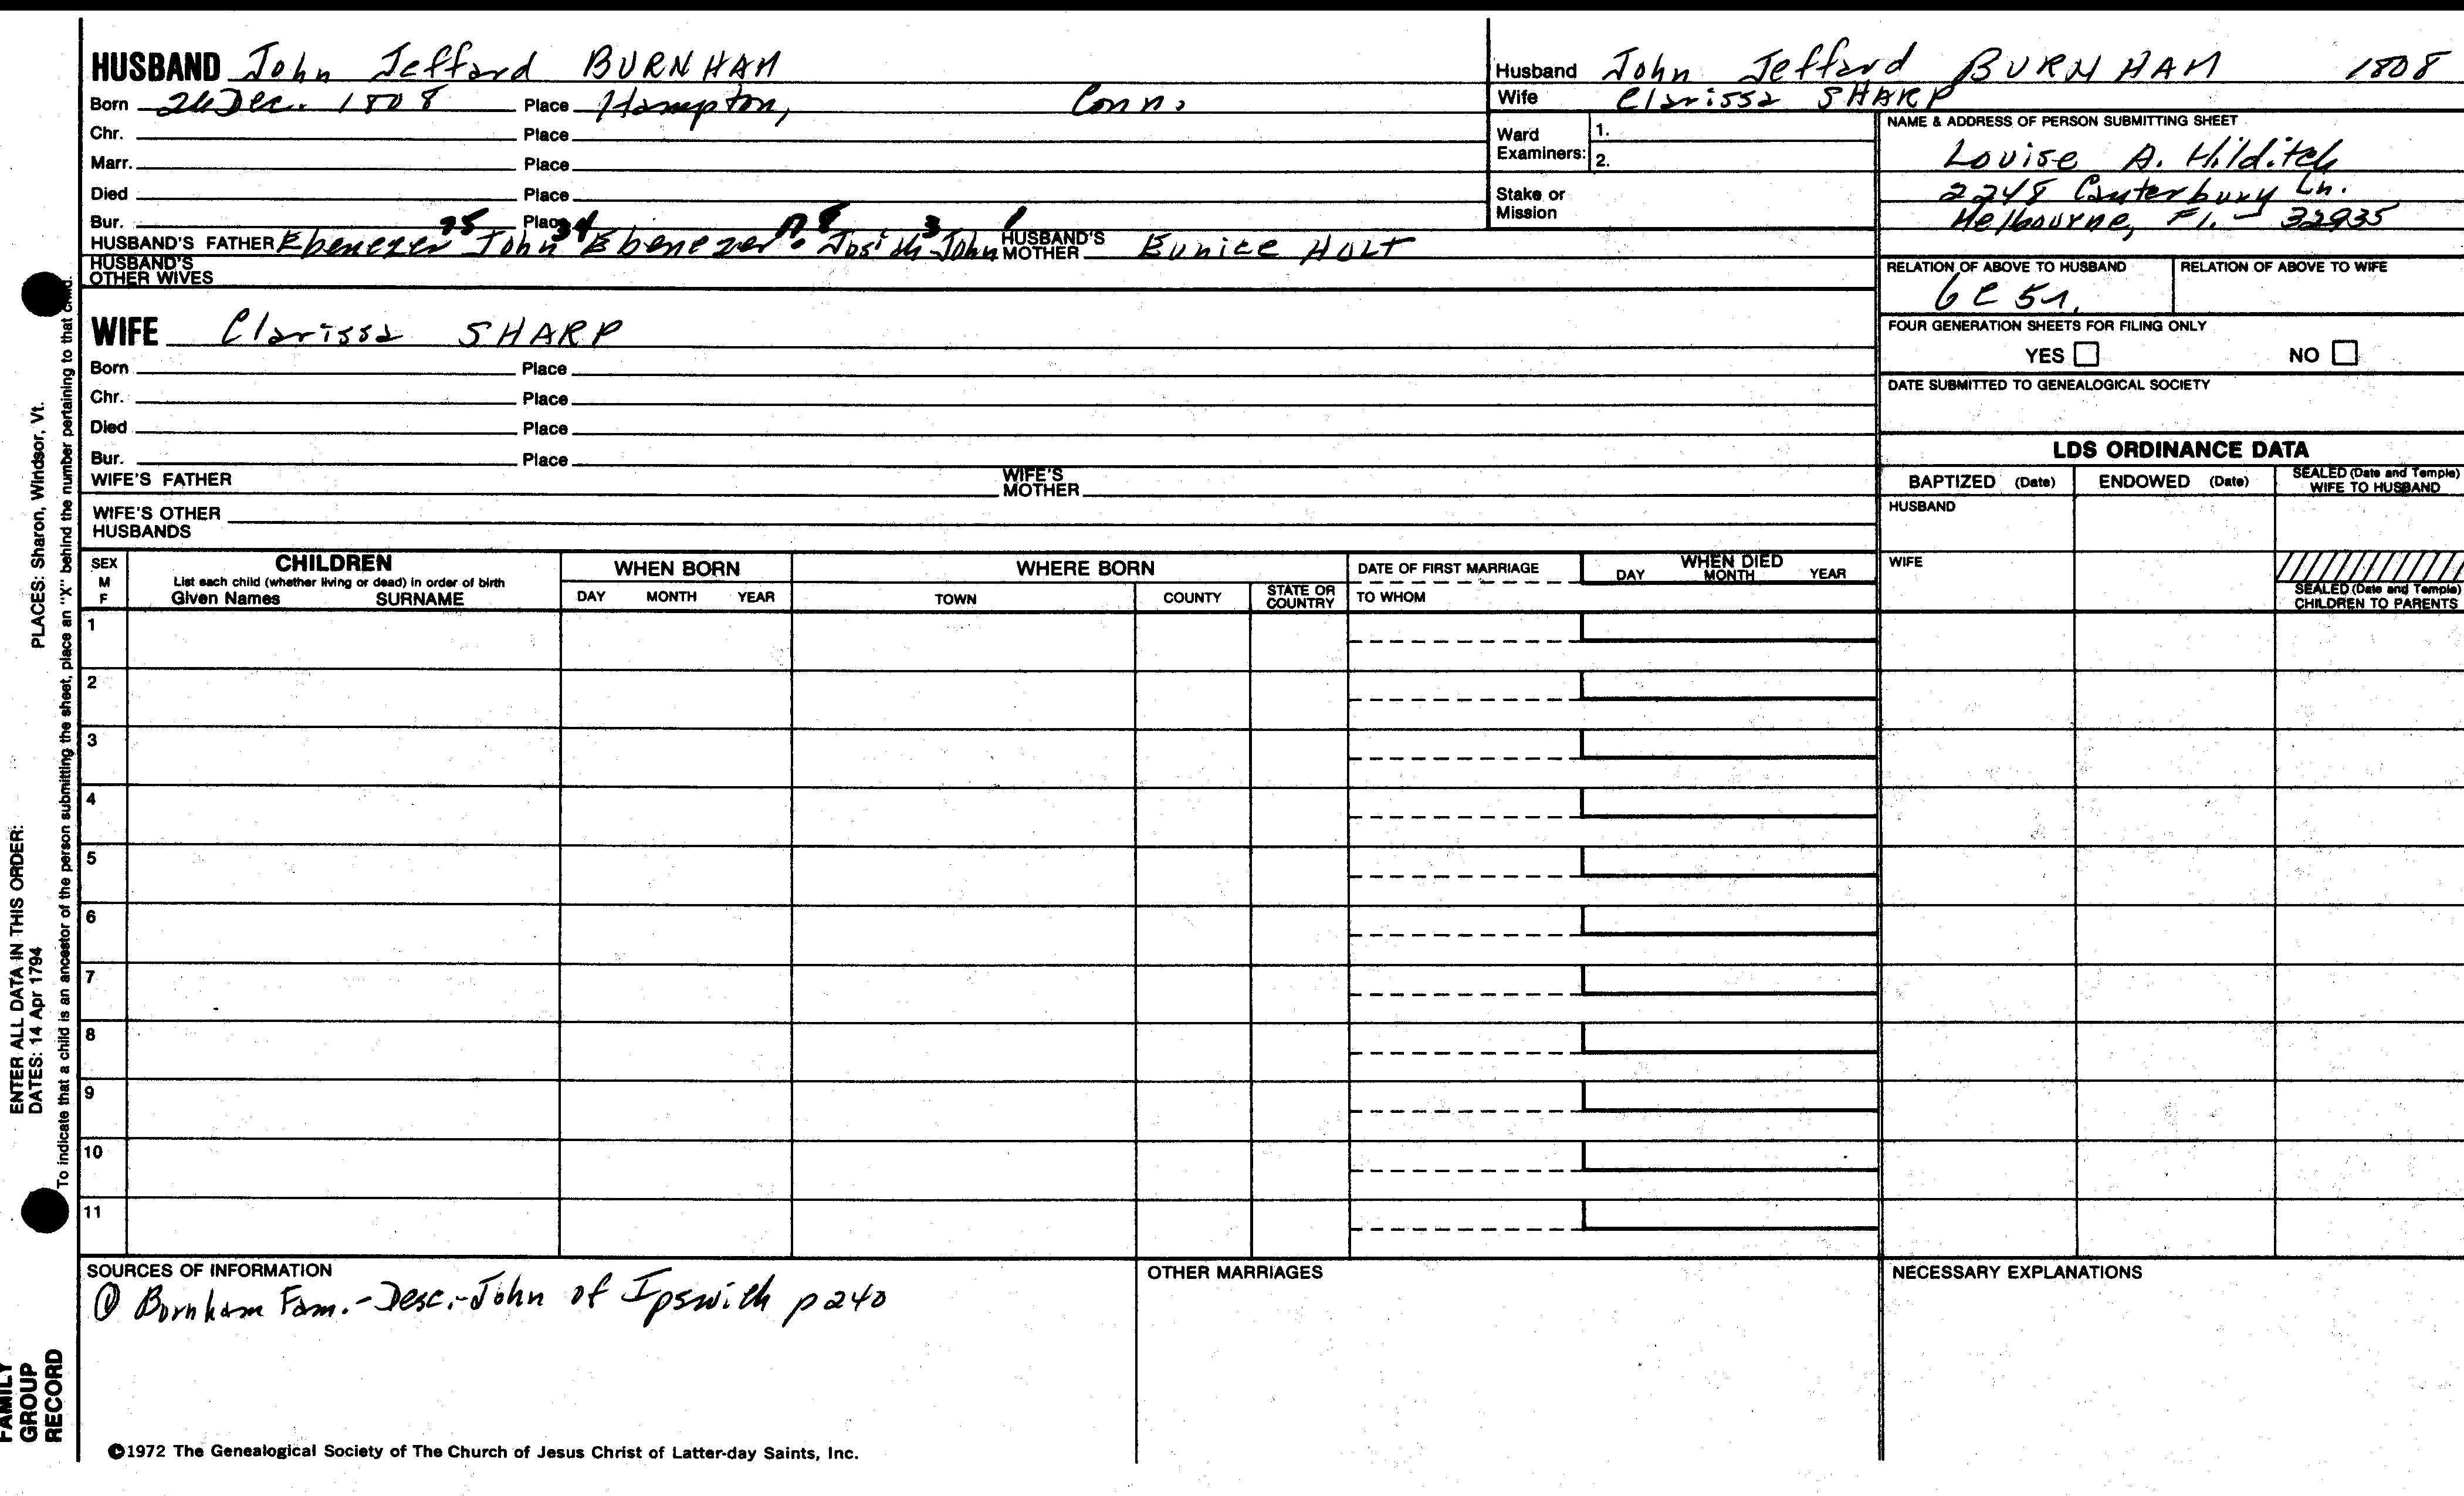 HUSBAND John Jeffard BURNHAM
Born 26 Dec. 1808 Place Hampton, Conn.
Chr. Place
Marr. Place
Died Place
Bur. Place
HUSBAND'S FATHER Ebenezer John Ebenezer Josiah John HUSBAND'S MOTHER Eunice HOLT
HUSBAND'S OTHER WIVES
WIFE Clarissa SHARP
Born Place
Chr. Place
Died Place
Bur. Place
WIFE'S FATHER WIFE'S MOTHER
WIFE'S OTHER HUSBANDS
Husband John Jeffard BURNHAM 1808
Wife Clarissa SHARP
Ward Examiners: 1.
2.
Stake or Mission
NAME & ADDRESS OF PERSON SUBMITTING SHEET
Louise A. Hilditch
2248 Canterbury Ln.
Melbourne, Fl. - 32935
RELATION OF ABOVE TO HUSBAND RELATION OF ABOVE TO WIFE
FOUR GENERATION SHEETS FOR FILING ONLY
YES NO
DATE SUBMITTED TO GENEALOGICAL SOCIETY
LDS ORDINANCE DATA
BAPTIZED (Date) ENDOWED (Date) SEALED (Date and Temple) WIFE TO HUSBAND
HUSBAND
WIFE
SEALED (Date and Temple) CHILDREN TO PARENTS
SEX M F
CHILDREN
List each child (whether living or dead) in order of birth
Given Names SURNAME
WHEN BORN
DAY MONTH YEAR
WHERE BORN
TOWN COUNTY STATE OR COUNTRY
DATE OF FIRST MARRIAGE
TO WHOM
WHEN DIED
DAY MONTH YEAR
1
2
3
4
5
6
7
8
9
10
11
SOURCES OF INFORMATION
① Burnham Fam. - Desc. - John of Ipswich p 240
OTHER MARRIAGES
NECESSARY EXPLANATIONS
©1972 The Genealogical Society of The Church of Jesus Christ of Latter-day Saints, Inc.
ENTER ALL DATA IN THIS ORDER:
DATES: 14 Apr 1794 PLACES: Sharon, Windsor, Vt.
To indicate that a child is an ancestor of the person submitting the sheet, place an "X" behind the number pertaining to that child.
FAMILY
GROUP
RECORD